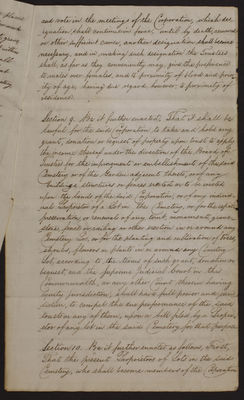 and vote in the meetings of the Corporation, which des-
ignation shall continue in force, until by death, removal
or other sufficient cause, another designation shall become
necessary, and in making such designation the Trustees
shall, as far as they conveniently may, give the preference
to males over females, and to proximity of blood and prior-
ity of age, having due regard, however, to proximity of
residence.
Section 9. Be it further enacted, That it shall be
lawful for the said Corporation to take and hold any
grant, donation or bequest of property upon trust to apply
the income thereof under the direction of the Board of
Trustees for the improvement or embellishment of the said
Cemetery or of the Garden adjacent thereto, or of any
buildings structures or fences erected or to be erected
upon the lands of the said Corporation, or of any individ-
ual Proprietor of a Lot in the Cemetery, or for the repair
preservation, or renewal of any tomb, monument, grave-
stone, fence or railing or other erection in or around any
Cemetery Lot, or for the planting and cultivation of trees,
shrubs, flowers or plants in or around any Cemetery
Lot, according to the terms of such grant, donation or
bequest, and the Supreme Judicial Court in this
Commonwealth, or any other Court therein having
equity jurisdiction, shall have full power and juris-
diction, to compel the due performance of the said
trusts or any of them, upon a bill filed by a Proprie-
tor of any Lot in the said Cemetery for that purpose.
Section 10. Be it further enacted as follows, First,
That the present Proprietors of Lots in the said
Cemetery, who shall become members of the Corporation